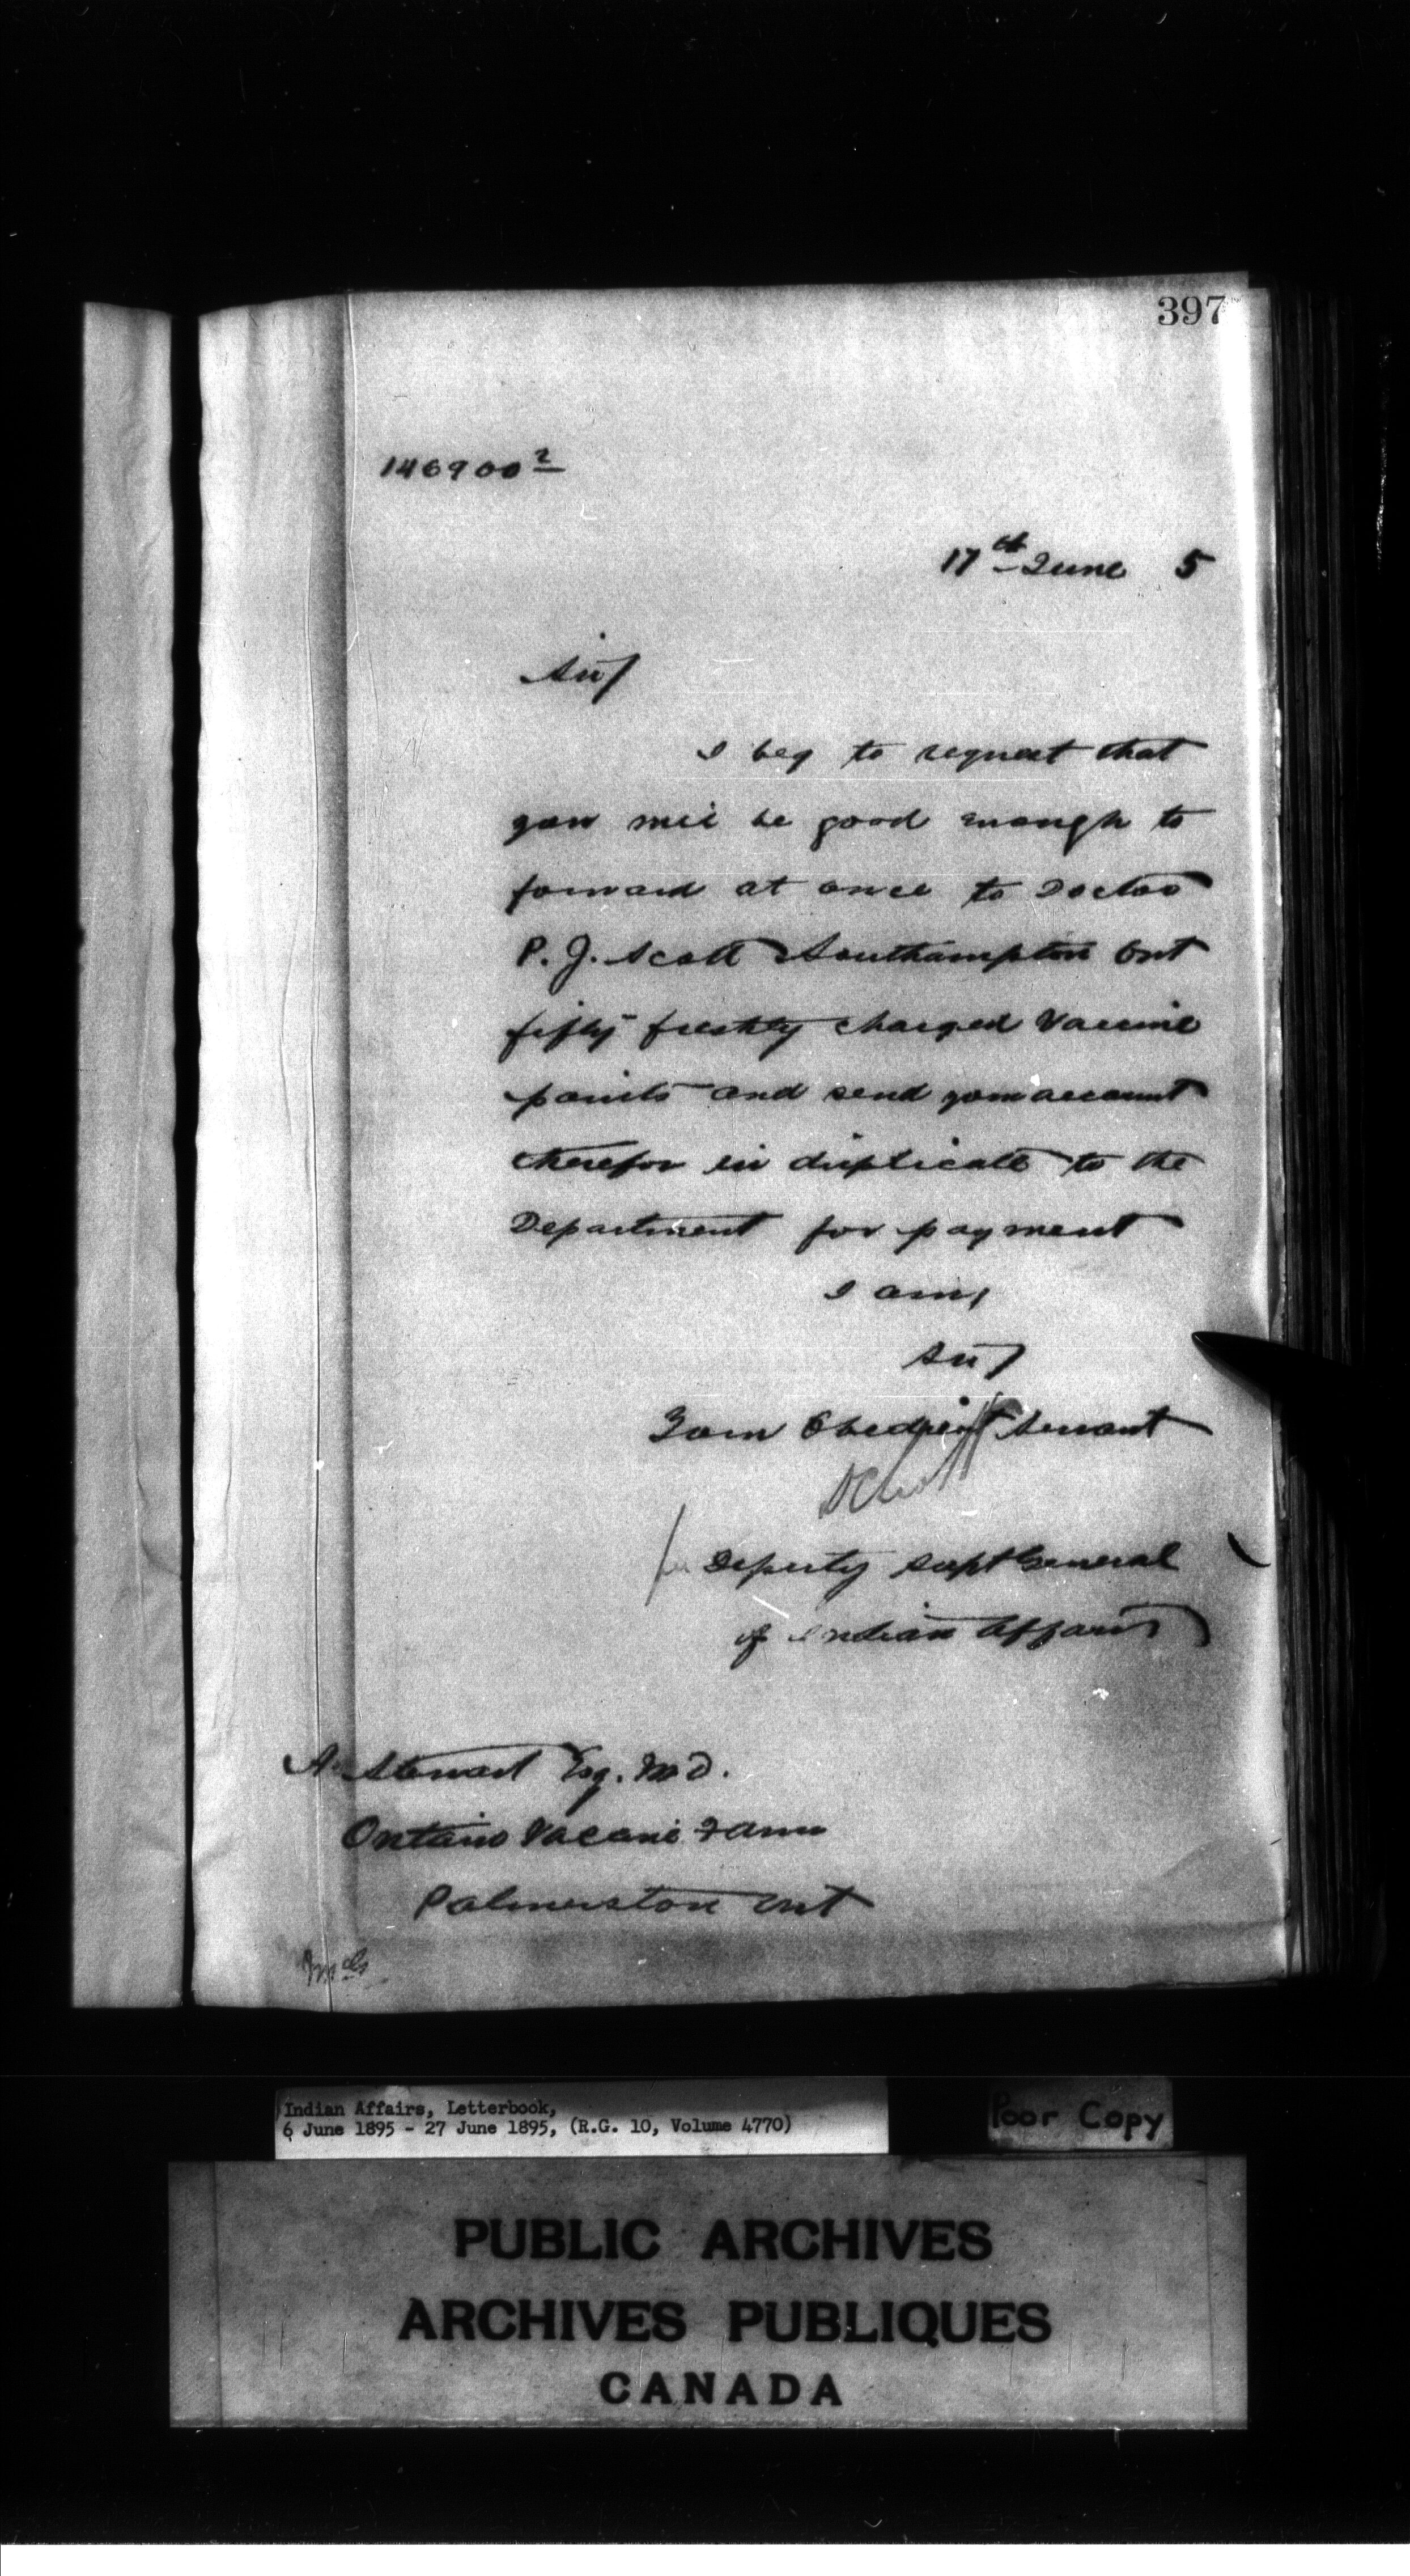 397
146900²
17th June 5
Sir,
I beg to request that
you will be good enough to
forward at once to Doctor
P. J. Scott Southampton Ont
fifty freshly charged Vaccine
points and send your account
therefor in duplicate to the
Department for payment
I am,
Sir,
Your Obedient Servant
for Deputy Supt General
of Indian Affairs
A. Stewart Esq. M D.
Ontario Vaccine Farm
Palmerston Ont
Indian Affairs, Letterbook,
6 June 1895 - 27 June 1895, (R.G. 10, Volume 4770)
Poor Copy
PUBLIC ARCHIVES
ARCHIVES PUBLIQUES
CANADA